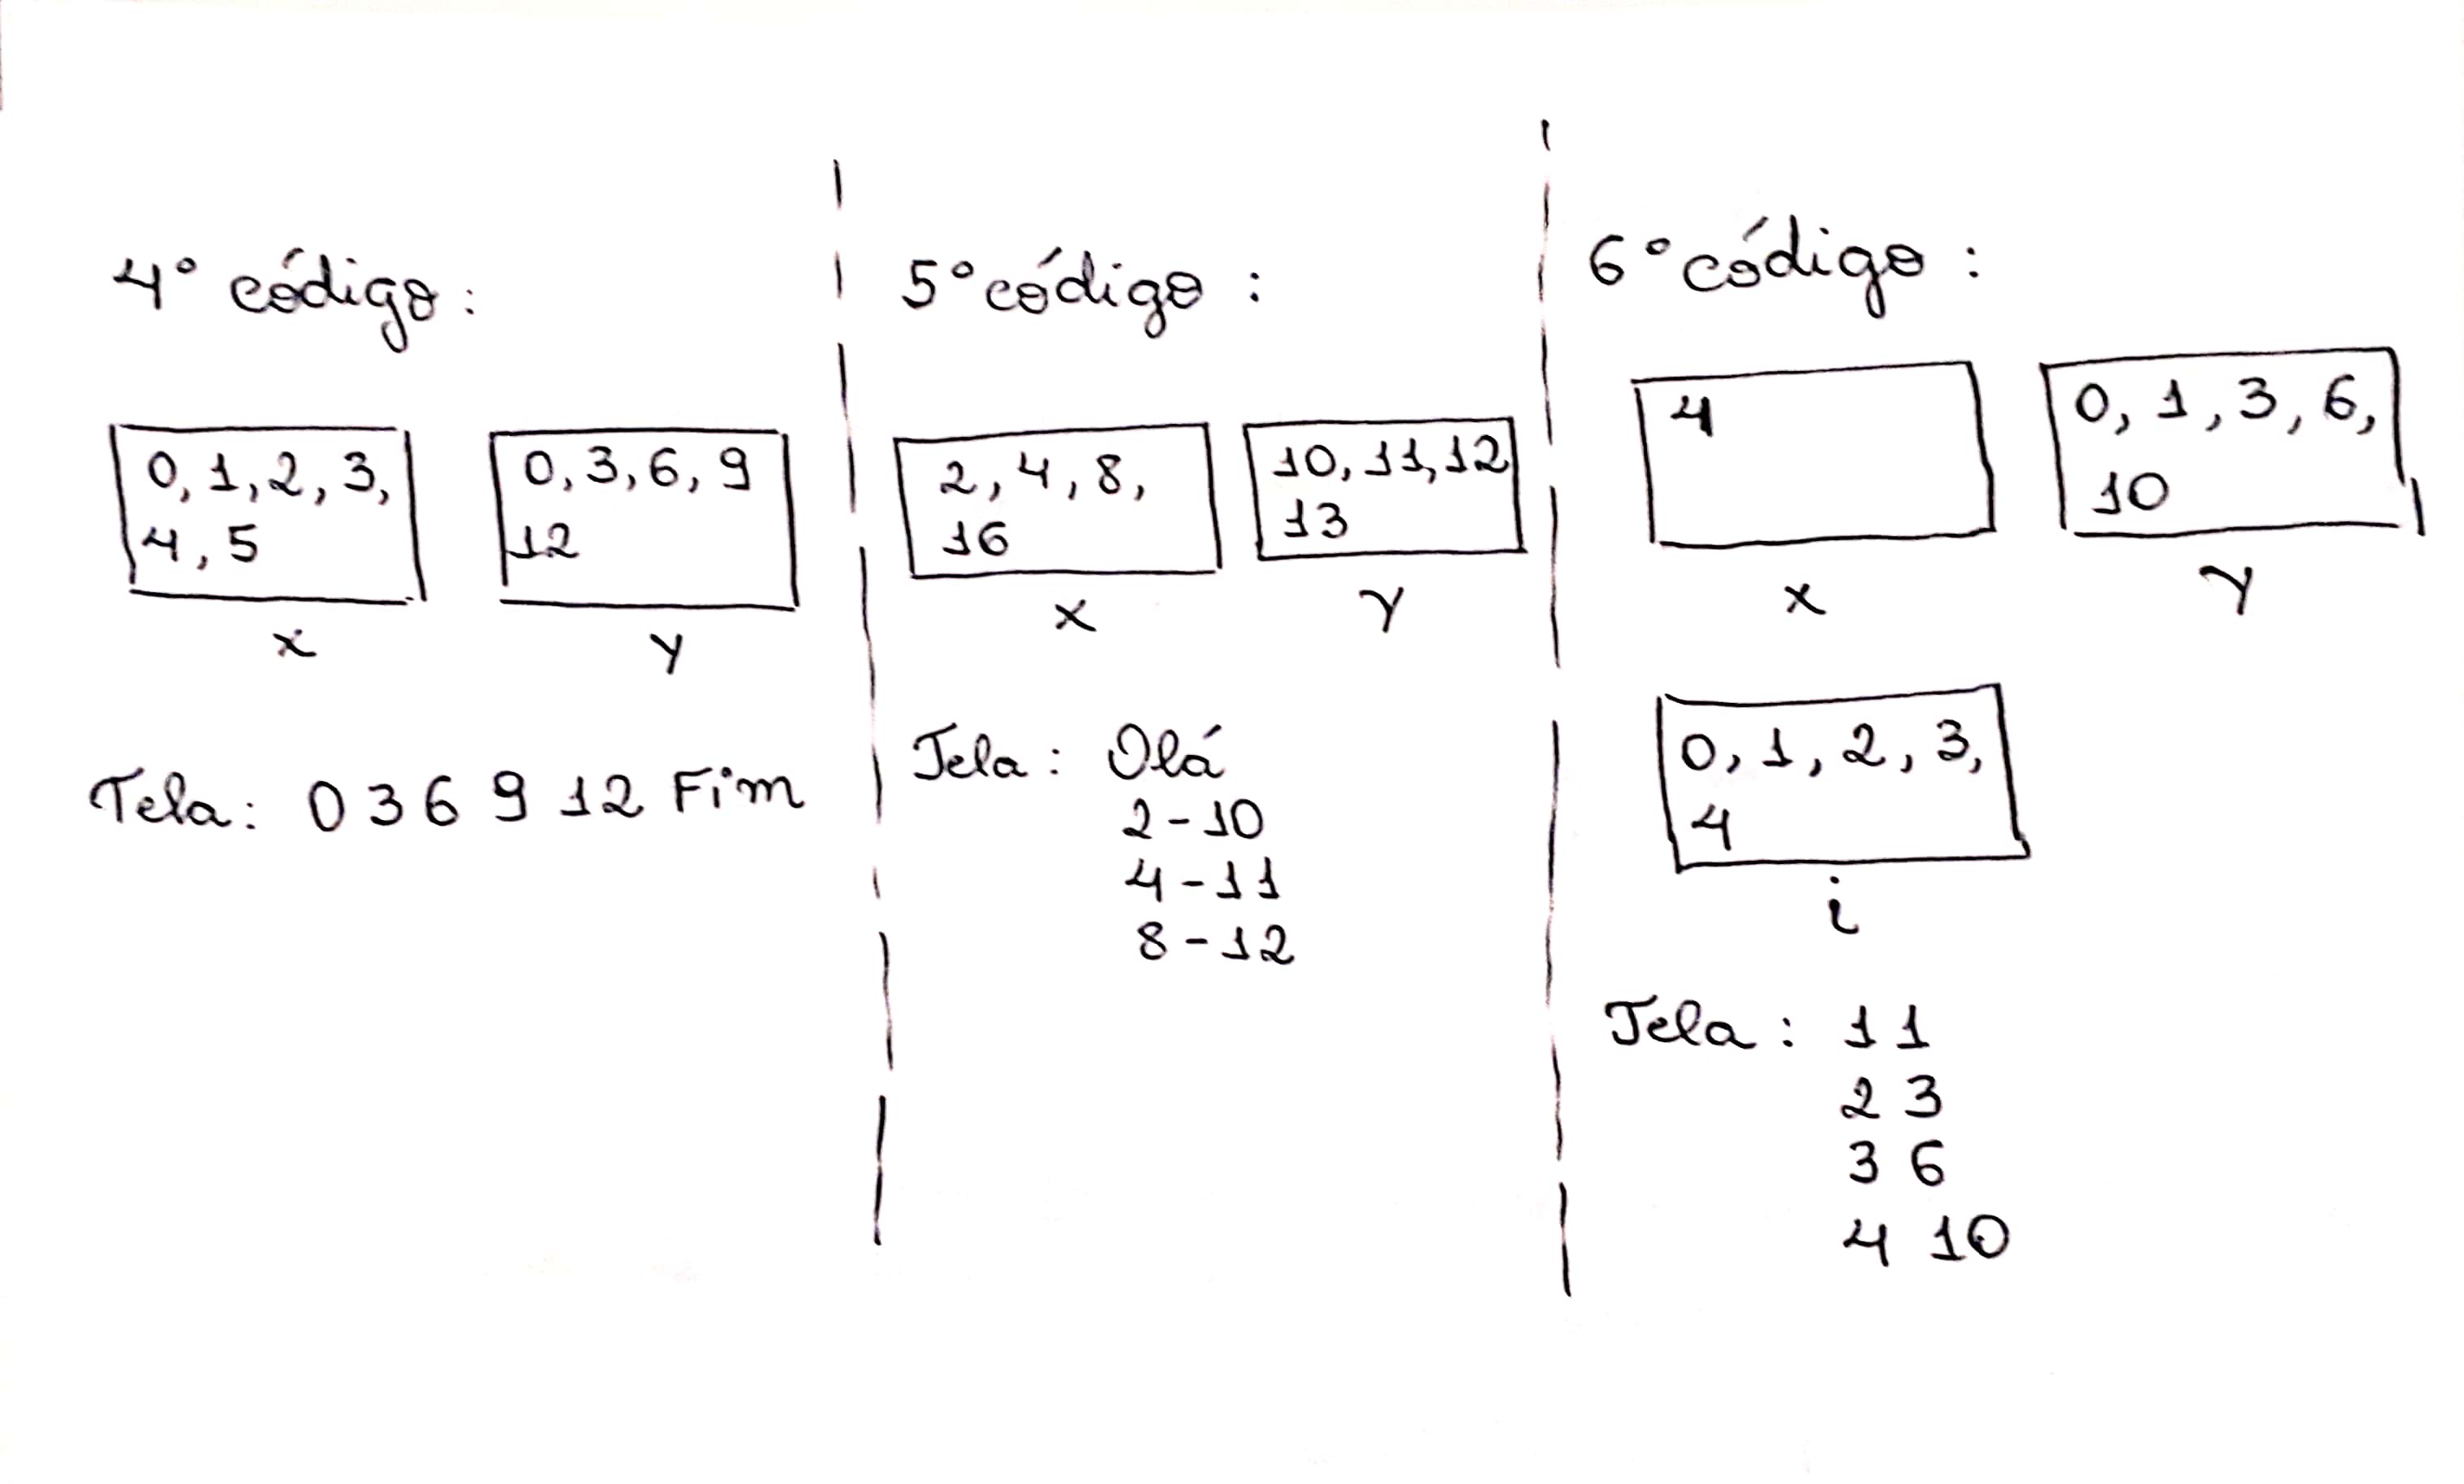 4º código:
0, 1, 2, 3,
4, 5
x
0, 3, 6, 9
12
y
Tela: 0 3 6 9 12 Fim
5º código:
2, 4, 8,
16
x
10, 11, 12
13
y
Tela: Olá
2-10
4-11
8-12
6º código:
4
x
0, 1, 3, 6,
10
y
0, 1, 2, 3,
4
i
Tela: 1 1
2 3
3 6
4 10